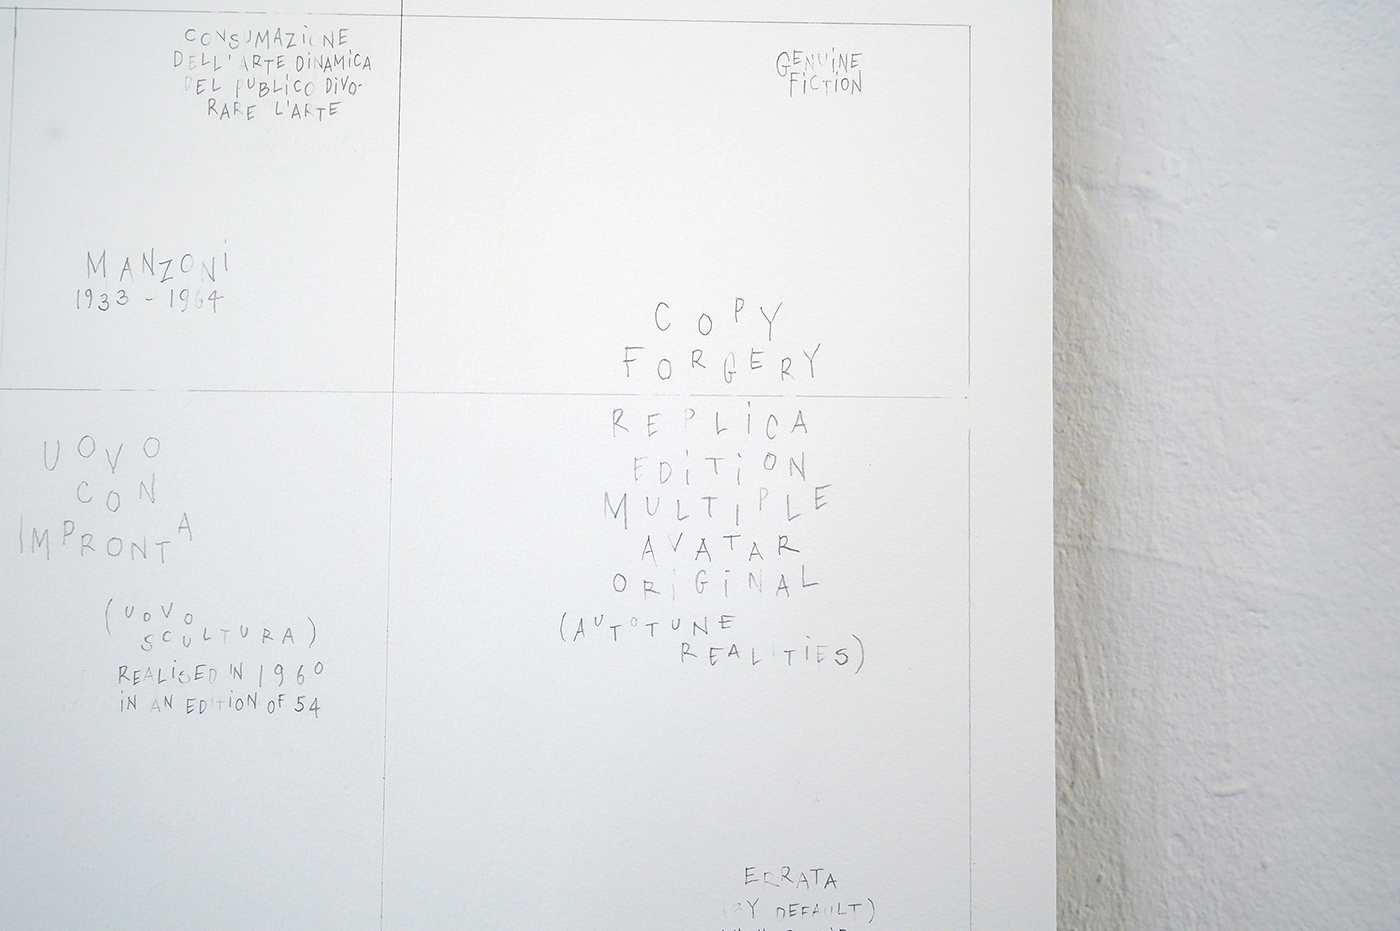 CONSUMAZIONE
DELL'ARTE DINAMICA
DEL PUBLICO DIVO-
RARE L'ARTE
MANZONI
1933 - 1964
UOVO
CON
IMPRONTA
(UOVO
SCULTURA)
REALISED IN 1960
IN AN EDITION OF 54
GENUINE
FICTION
COPY
FORGERY
REPLICA
EDITION
MULTIPLE
AVATAR
ORIGINAL
(AUTOTUNE
REALITIES)
ERRATA
(BY DEFAULT)